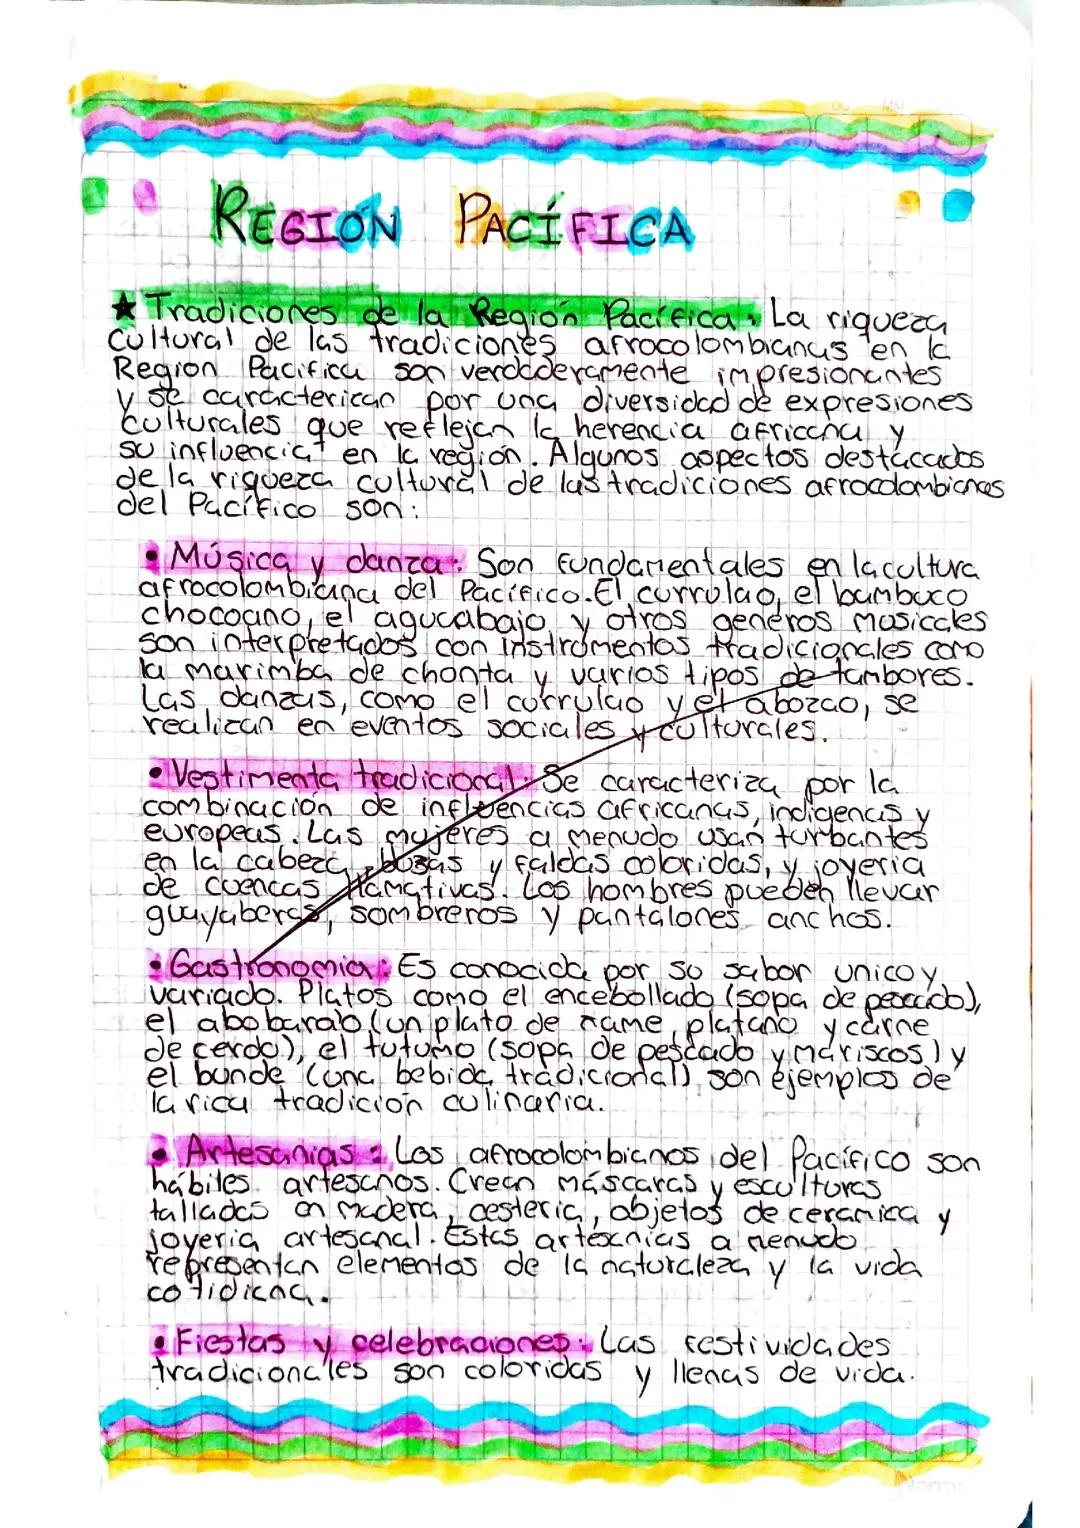 REGIÓN PACÍFICA
★ Tradiciones de la Región Pacífica: La riqueza
cultural de las tradiciones afrocolombianas en la
Region Pacifica son verdaderamente impresionantes
y se caracterizan por una diversidad de expresiones
culturales que reflejan la herencia africana y
su influencia en la región. Algunos aspectos destacados
de la riqueza cultural de las tradiciones afrocolombianas
del Pacífico son:
• Música y danza: Son fundamentales en la cultura
afrocolombiana del Pacífico. El currulao, el bambuco
chocoano, el aguabajo y otros generos musicales
son interpretados con instrumentos tradicionales como
la marimba de chonta y varios tipos de tambores.
Las danzas, como el currulao y el abozao, se
realizan en eventos sociales y culturales.
• Vestimenta tradicional: Se caracteriza por la
combinación de influencias africanas, indigenas y
europeas. Las mujeres a menudo usan turbantes
en la cabeza, blusas y faldas coloridas, y joyeria
de cuencas llamativas. Los hombres pueden llevar
guayaberas, sombreros y pantalones anchos.
• Gastronomia: Es conocida por su sabor unico y
variado. Platos como el encebollado (sopa de pescado),
el (un plato de ñame, platano y carne
de cerdo), el tutumo (sopa de pescado y mariscos) y
el bunde (una bebida tradicional) son ejemplos de
la rica tradición culinaria.
• Artesanias: Los afrocolombianos del Pacífico son
hábiles artesanos. Crean máscaras y esculturas
talladas en madera, cesteria, objetos de ceramica y
joyeria artesanal. Estas artesanias a menudo
representan elementos de la naturaleza y la vida
cotidiana.
• Fiestas y celebraciones: Las festividades
tradicionales son coloridas y llenas de vida.
Norma